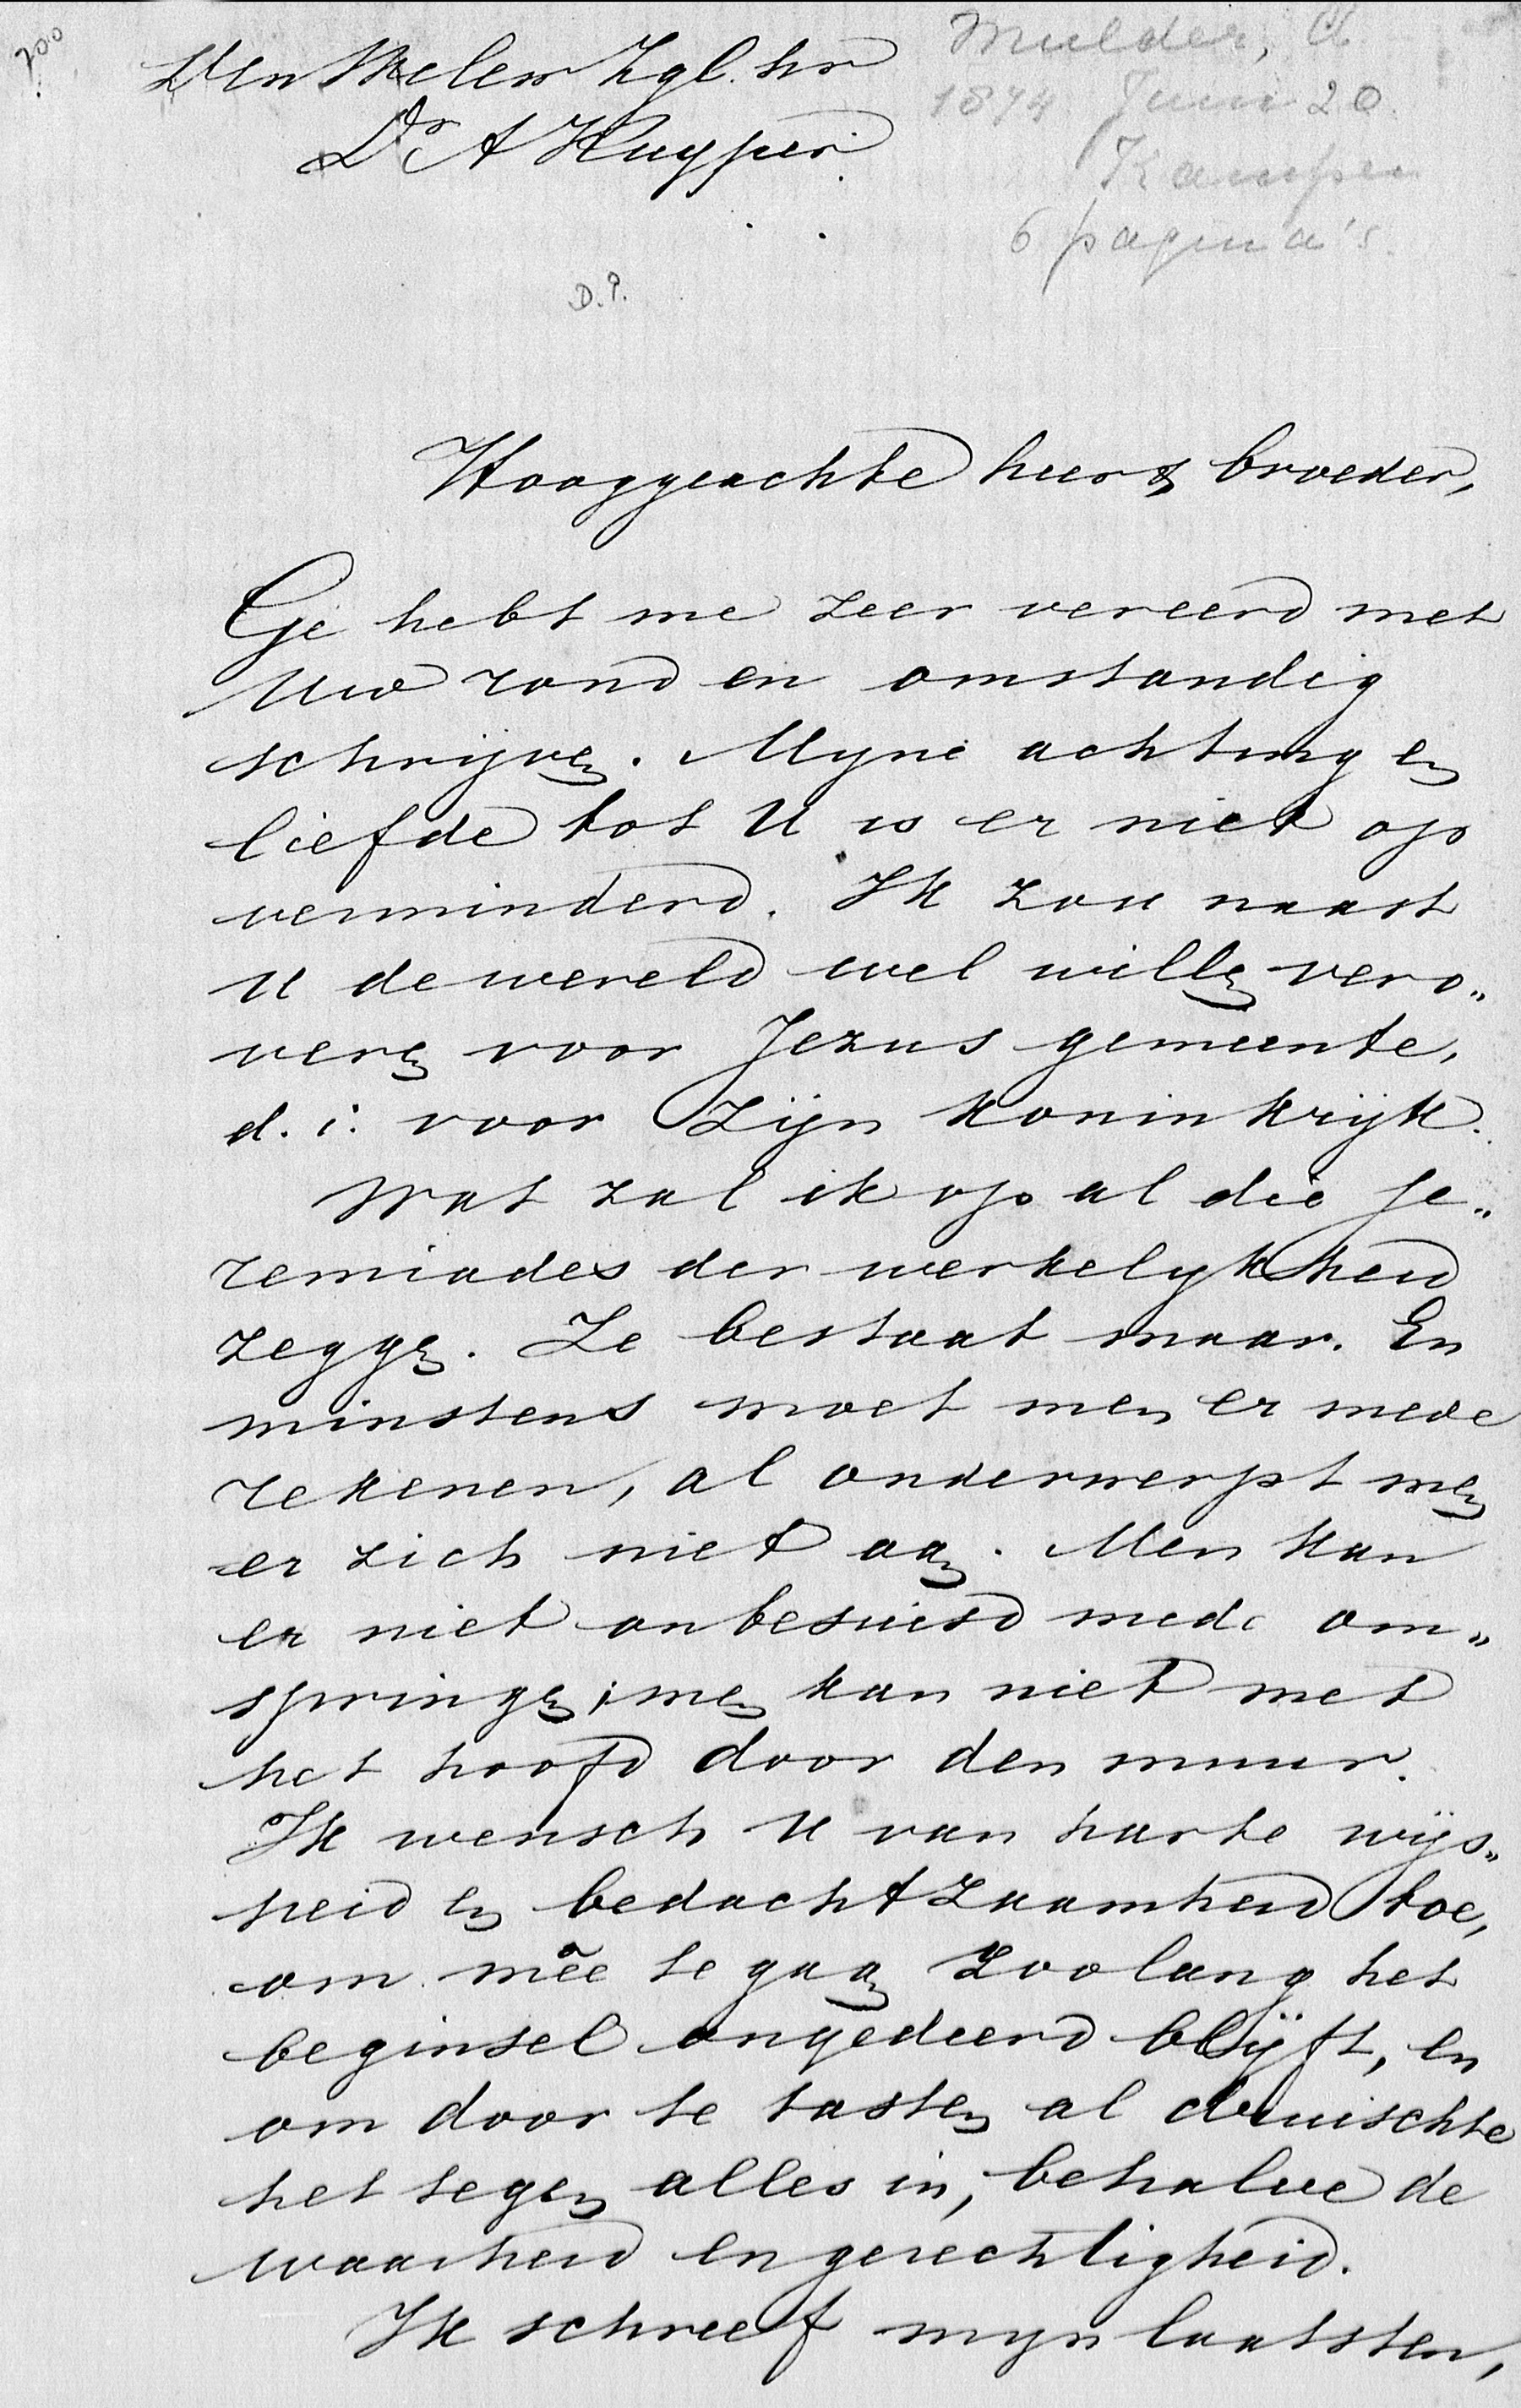 700
Den Weleer Zgl. hr
Mulder, A
1874 Juni 20.
Dr A Kuyper.
Kampen
6 pagina's.
D.P.
Hooggeachte heer & broeder,
Ge hebt me zeer vereerd met
Uw rond en omstandig
schrijven. Myne achting en
liefde tot U is er niet op
verminderd. Ik zou naast
U de wereld wel willen vero„
veren voor Jezus gemeente,
d. i. voor Zijn koninkrijk.
Wat zal ik op al die je„
remiades der werkelykheid
zeggen. Ze bestaat maar. En
minstens moet men er mede
rekenen, al onderwerpt men
er zich niet aan. Men kan
er niet onbesuisd mede om„
springen; men kan niet met
het hoofd door den muur.
Ik wensch U van harte wijs„
heid en bedachtzaamheid toe,
om mêe te gaan zoolang het
beginsel ongedeerd blijft, en
om door te tasten al druischte
het tegen alles in, behalve de
waarheid en gerechtigheid.
Ik schreef mijn laatsten,